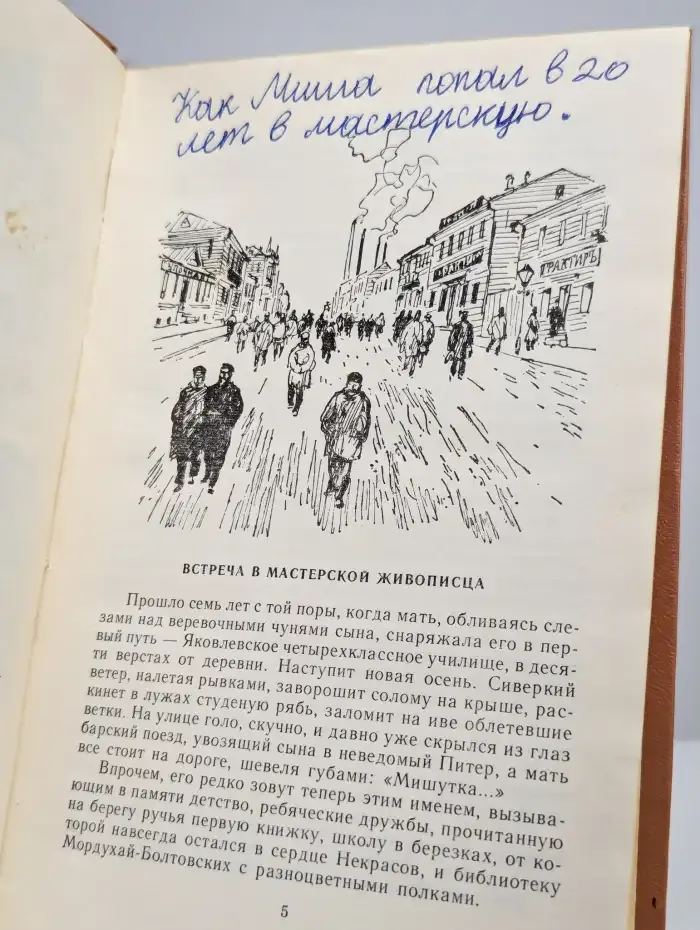 Как Миша попал в 20
лет в мастерскую.
ТРАКТИРЪ
ВСТРЕЧА В МАСТЕРСКОЙ ЖИВОПИСЦА
Прошло семь лет с той поры, когда мать, обливаясь сле-
зами над веревочными чунями сына, снаряжала его в пер-
вый путь — Яковлевское четырехклассное училище, в деся-
ти верстах от деревни. Наступит новая осень. Сиверкий
ветер, налетая рывками, заворошит солому на крыше, рас-
кинет в лужах студеную рябь, заломит на иве облетевшие
ветки. На улице голо, скучно, и давно уже скрылся из глаз
барский поезд, увозящий сына в неведомый Питер, а мать
все стоит на дороге, шевеля губами: «Мишутка...»
Впрочем, его редко зовут теперь этим именем, вызыва-
ющим в памяти детство, ребяческие дружбы, прочитанную
на берегу ручья первую книжку, школу в березках, от ко-
торой навсегда остался в сердце Некрасов, и библиотеку
Мордухай-Болтовских с разноцветными полками.
5